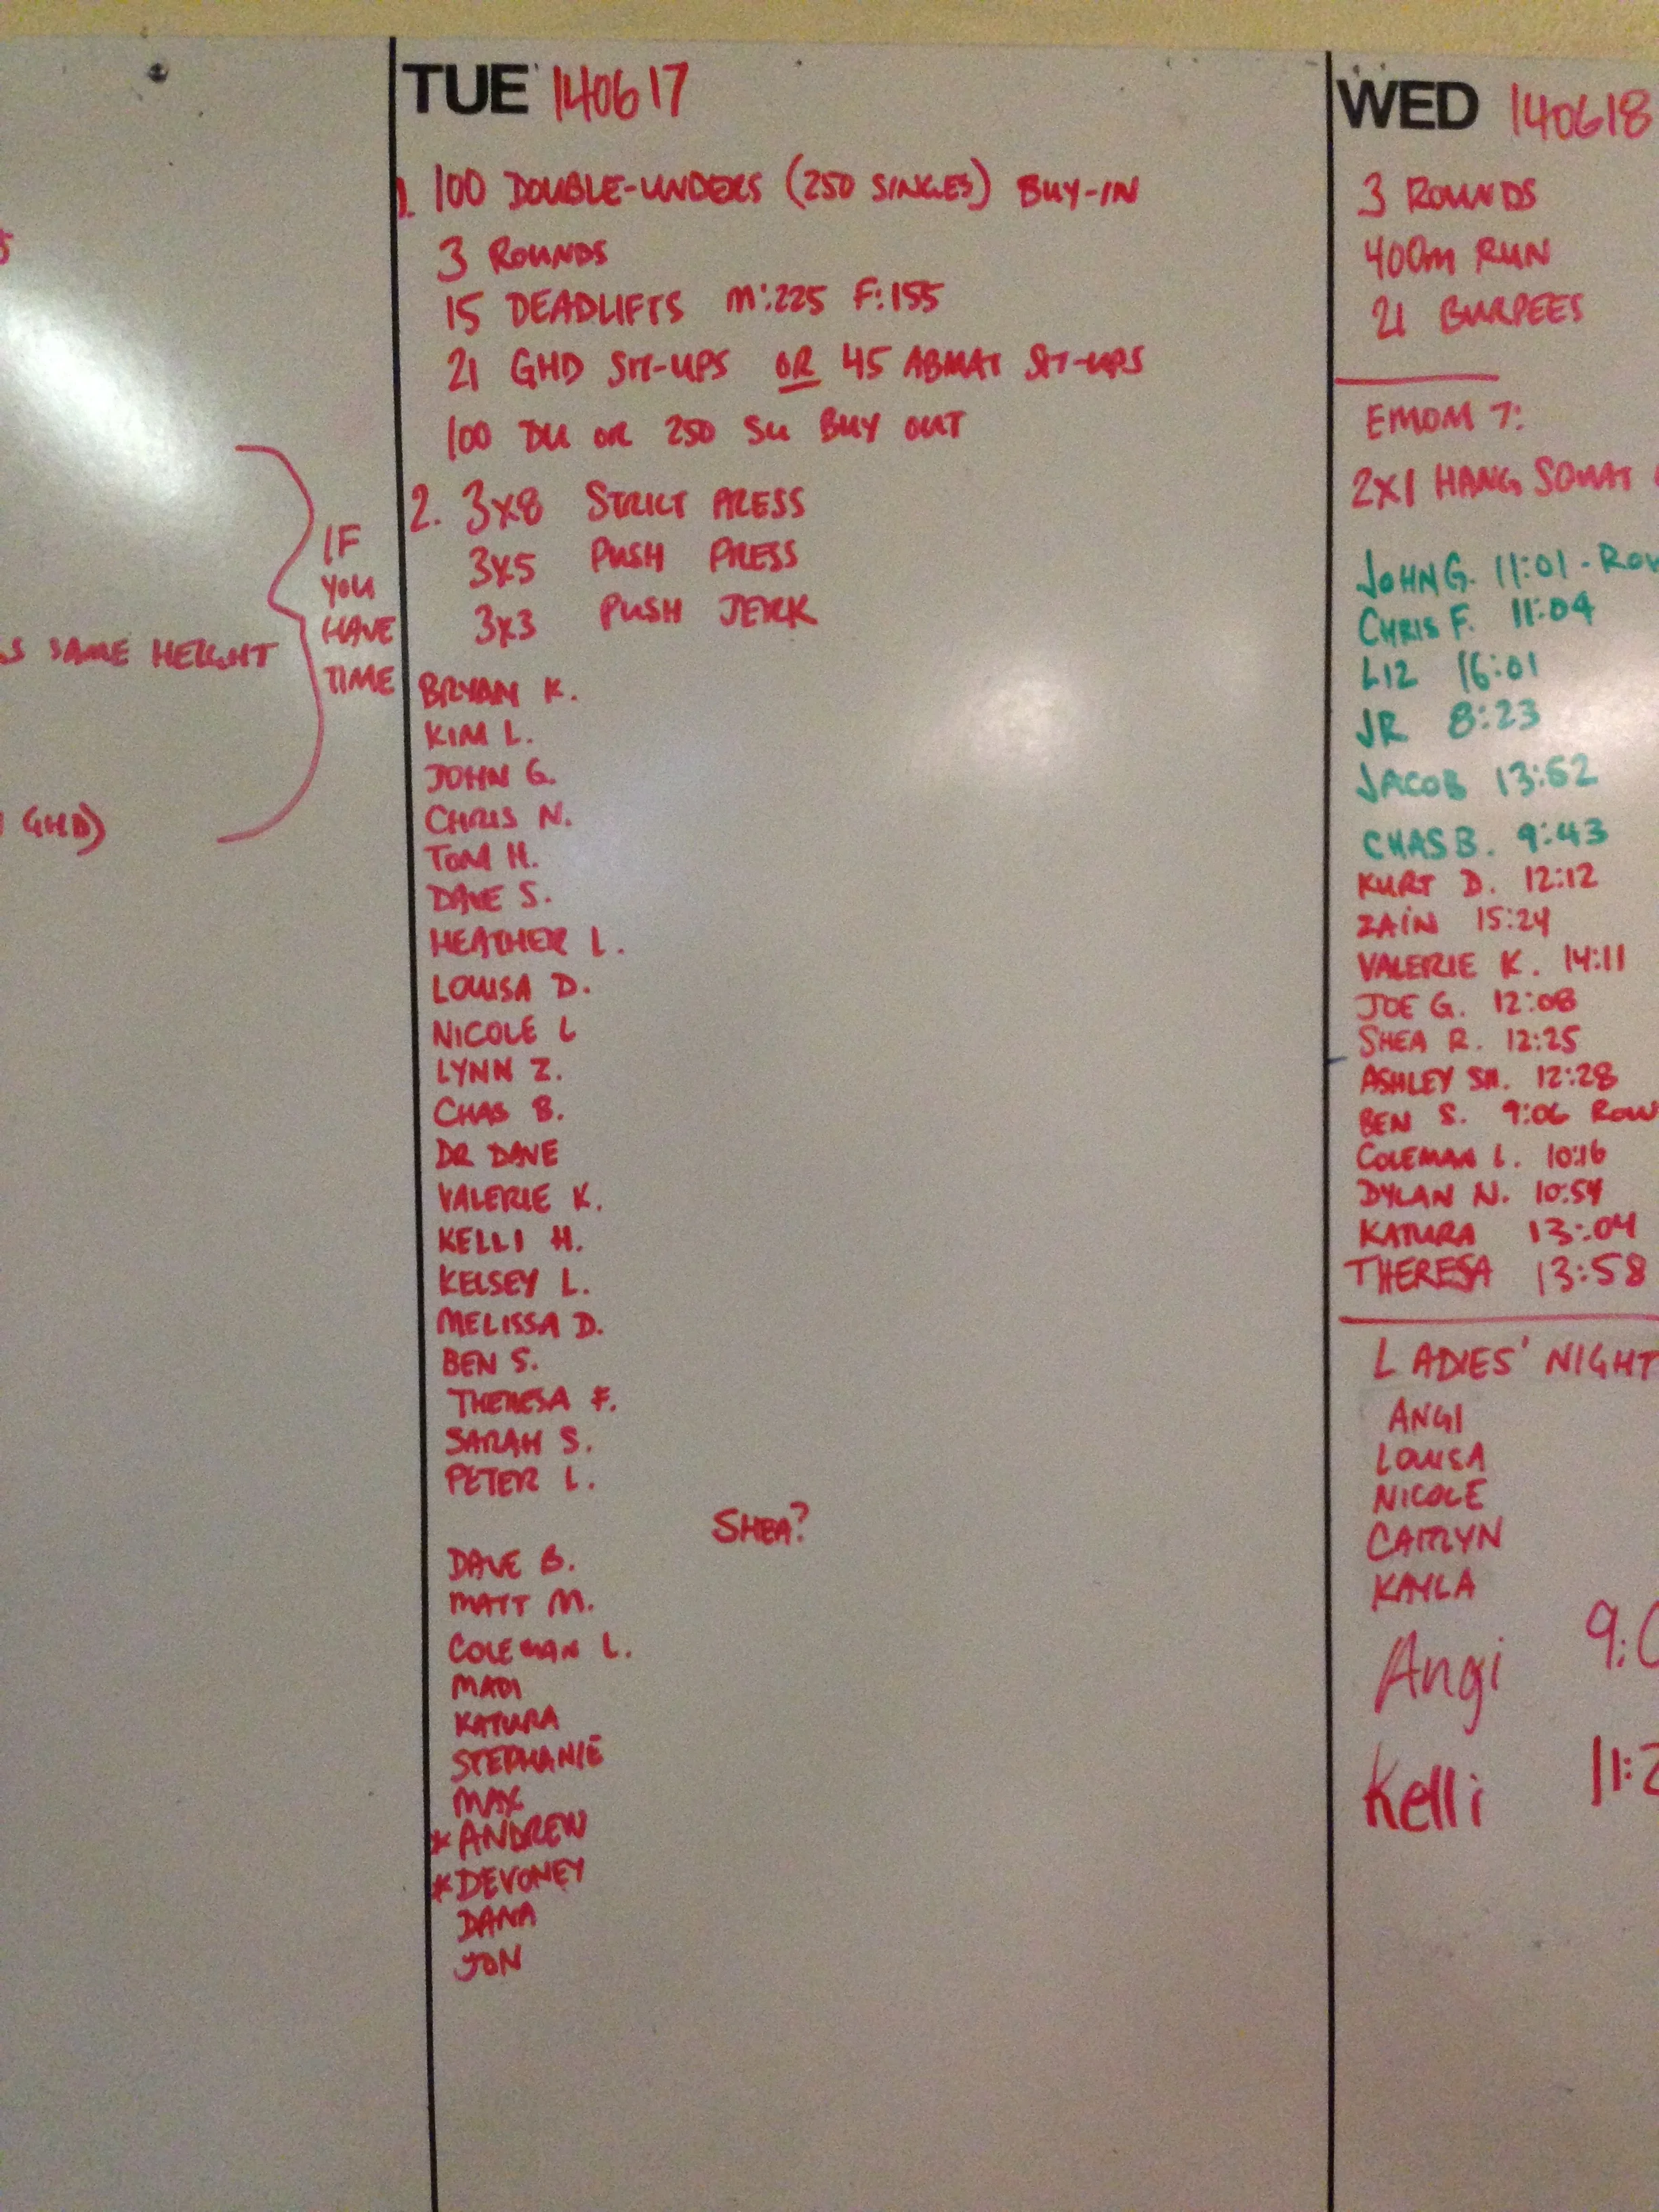 S SAME HEIGHT
GHD)
IF
YOU
HAVE
TIME
TUE 140617
1. 100 DOUBLE-UNDERS (250 SINGLES) BUY-IN
3 ROUNDS
15 DEADLIFTS M:225 F:155
21 GHD SIT-UPS OR 45 ABMAT SIT-UPS
100 DU OR 250 SU BUY OUT
2. 3x8 STRICT PRESS
3x5 PUSH PRESS
3x3 PUSH JERK
BRYAN K.
KIM L.
JOHN G.
CHRIS N.
TOM H.
DAVE S.
HEATHER L.
LOUISA D.
NICOLE L
LYNN Z.
CHAS B.
DR DAVE
VALERIE K.
KELLI H.
KELSEY L.
MELISSA D.
BEN S.
THERESA F.
SARAH S.
PETER L.
SHEA?
DAVE B.
MATT M.
COLEMAN L.
MADI
KATURA
STEPHANIE
MAX
*ANDREW
*DEVONEY
DANA
JON
WED 140618
3 ROUNDS
400m RUN
21 BURPEES
EMOM 7:
2x1 HANG SQUAT
JOHN G. 11:01 - ROW
CHRIS F. 11:04
LIZ 16:01
JR 8:23
JACOB 13:52
CHAS B. 9:43
KURT D. 12:12
ZAIN 15:24
VALERIE K. 14:11
JOE G. 12:08
SHEA R. 12:25
ASHLEY SH. 12:28
BEN S. 9:06 ROW
COLEMAN L. 10:16
DYLAN N. 10:54
KATURA 13:04
THERESA 13:58
LADIES' NIGHT
ANGI
LOUISA
NICOLE
CAITLYN
KAYLA
Angi 9:0
Kelli 11:2